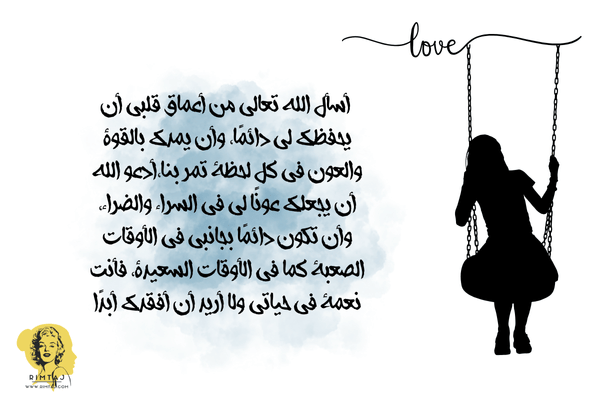 love
أسأل الله تعالى من أعماق قلبي أن
يحفظك لي دائمًا، وأن يمدك بالقوة
والعون في كل لحظة تمر بنا.أدعو الله
أن يجعلك عونًا لي في السراء والضراء،
وأن تكون دائمًا بجانبي في الأوقات
الصعبة كما في الأوقات السعيدة، فأنت
نعمة في حياتي ولا أريد أن أفقدك أبدًا
RIMTAJ
WWW.RIMTAJ.COM